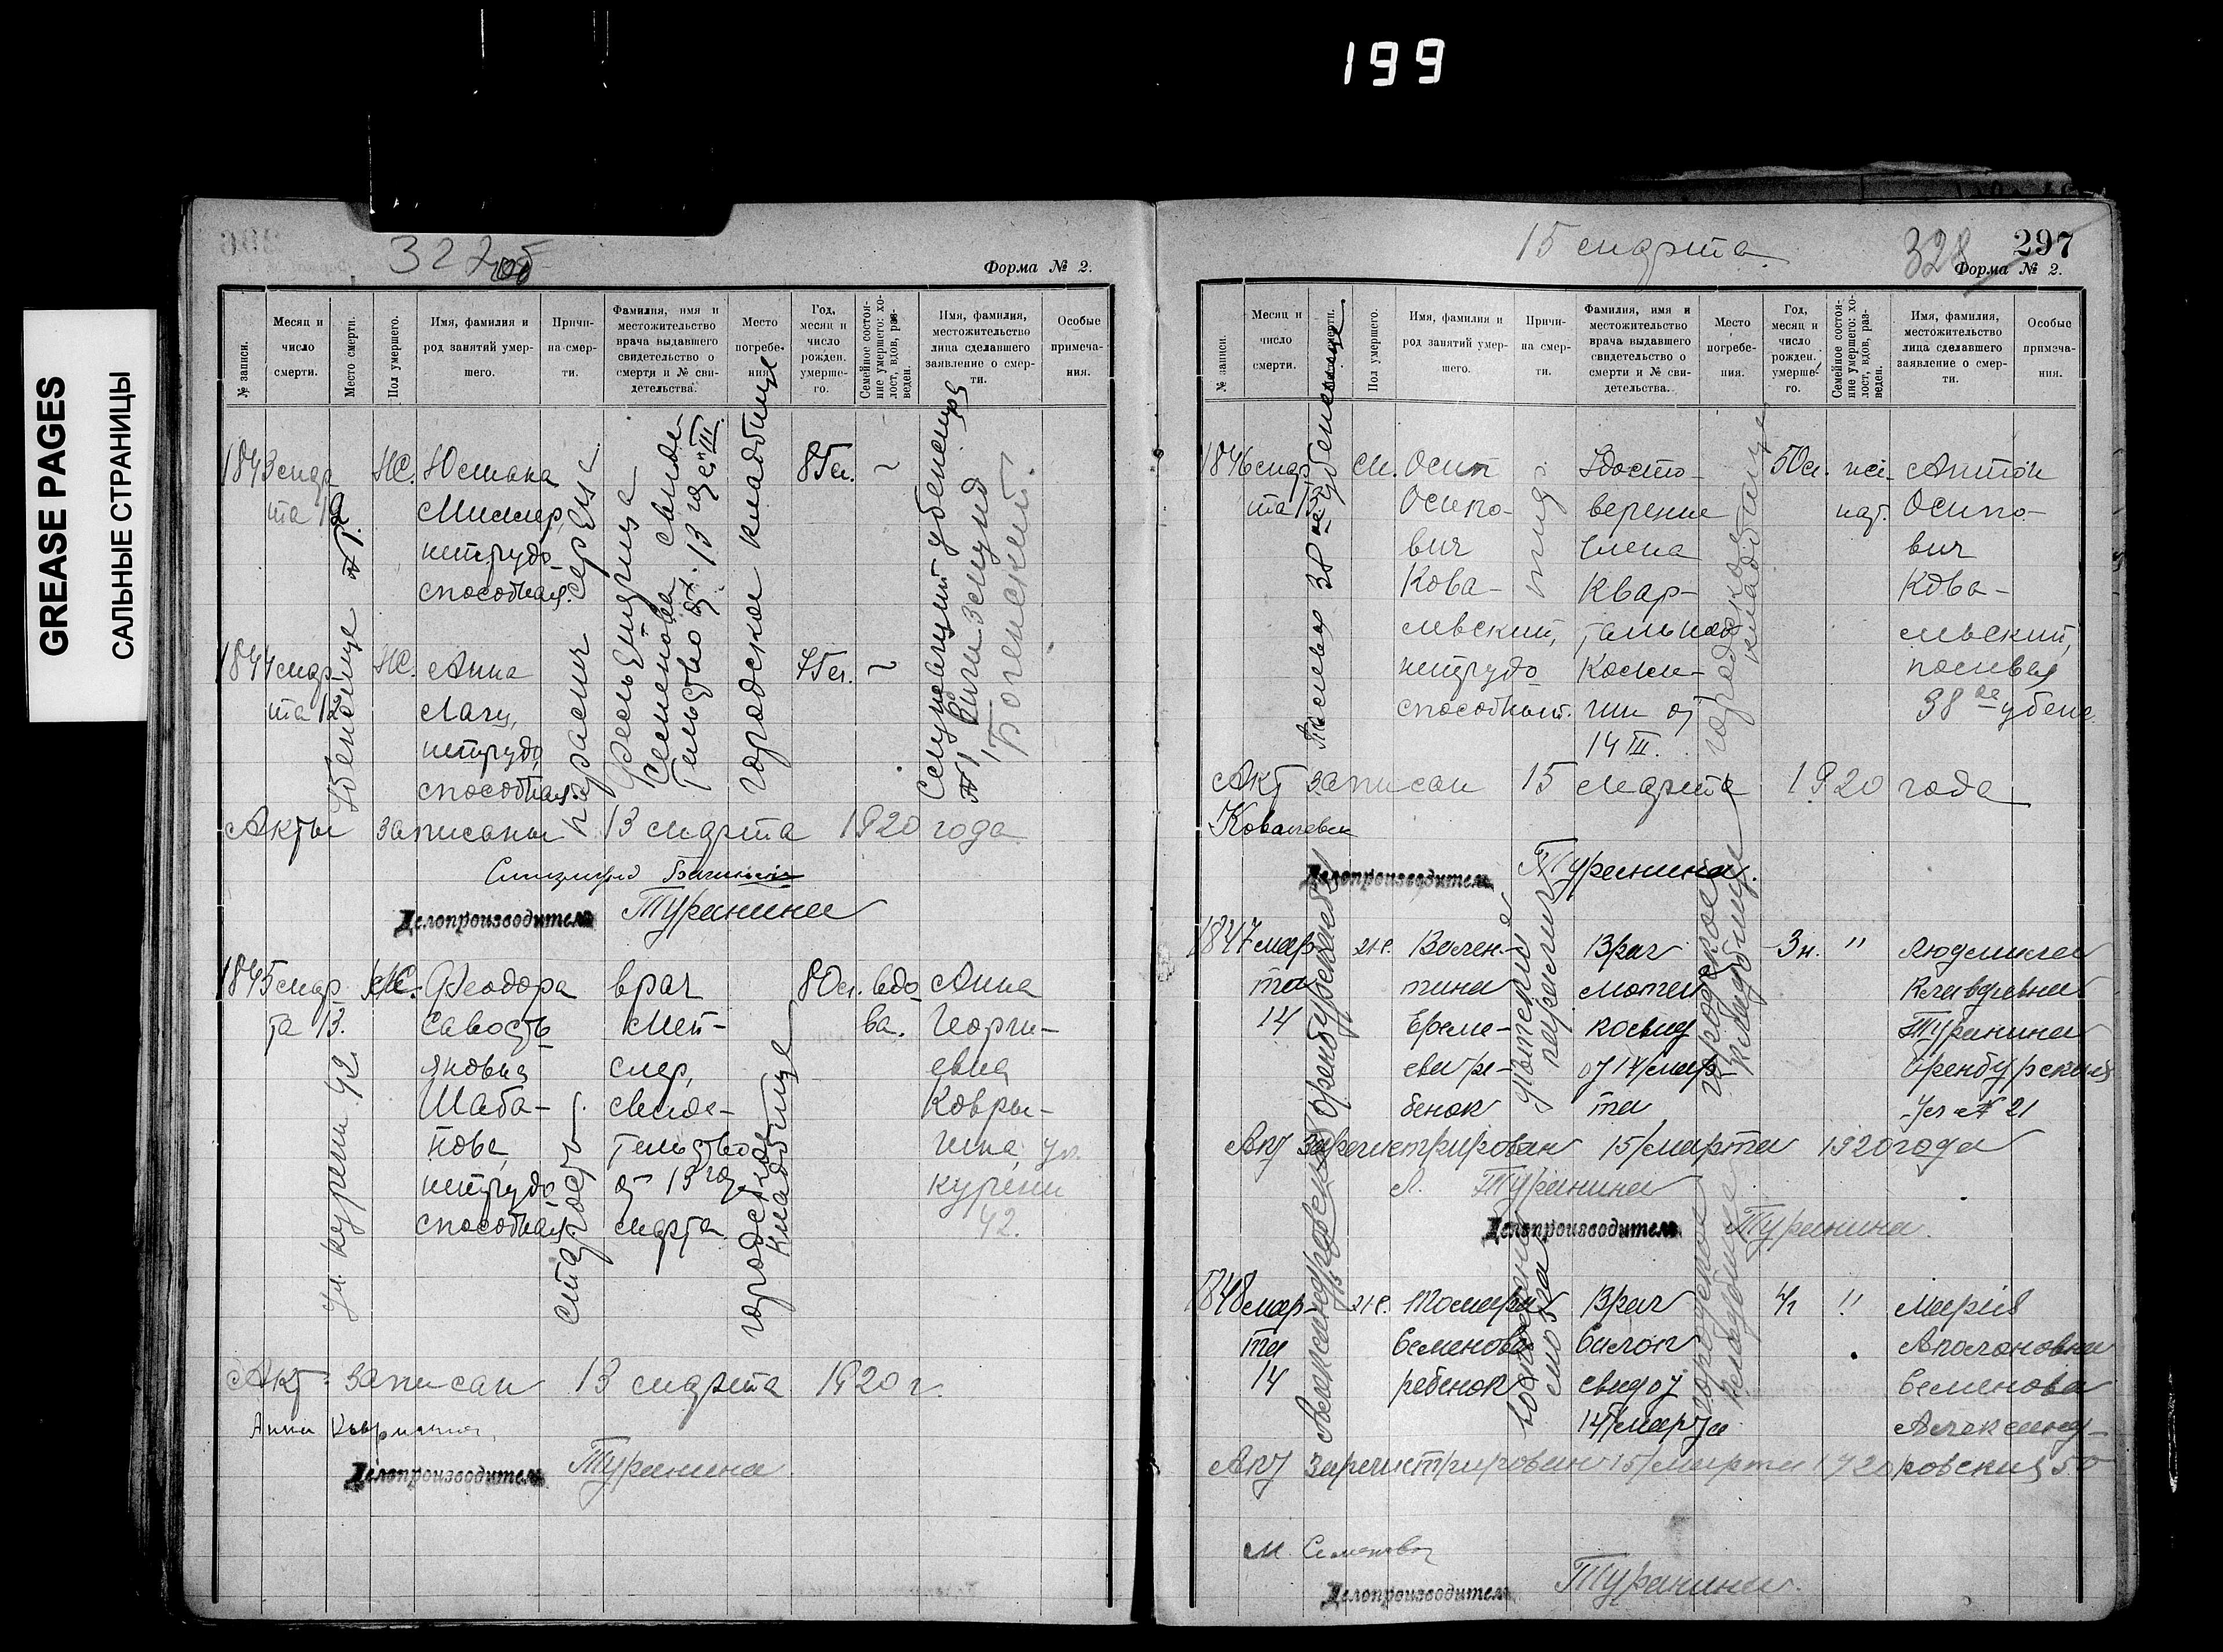 199
GREASE PAGES
САЛЬНЫЕ СТРАНИЦЫ
322 об
Форма № 2.
№ записи.
Месяц и число смерти.
Место смерти.
Пол умершего.
Имя, фамилия и род занятий умершего.
Причина смерти.
Фамилия, имя и местожительство врача выдавшего свидетельство о смерти и № свидетельства.
Место погребения.
Год, месяц и число рожден. умершего.
Семейное состояние умершего: холост, вдов, разведен.
Имя, фамилия, местожительство лица сделавшего заявление о смерти.
Особые примечания.
1843 мар
та 12
Ж.
Миллер,
нетрудо-
способная.
85 л.
1844 мар-
та 12
Ж. Анна
нетрудо,
способная.
75 л.
Убежище № 1.
паралич сердца
Семенова свиде-
тельство от 13 го "III"
городское кладбище
Служащий убежища
№ 1
Акты записаны 13 марта 1920 года
Делопроизводитель Туранина
1845 мар
та 13.
Ж. Феодора
Савость
яновна
Шаба-
нова,
нетрудо
способная
ул. курени 42
старость
врач
Мей-
мер,
свиде-
тельство
от 13 го
марта
городское
кладбище
80 л. вдо
ва.
Анна
Георги-
евна
Ковры-
гина, ул.
курени
42.
Акт записан 13 марта 1920 г.
Делопроизводитель Туранина
15 марта
328
297
Форма № 2.
№ записи.
Месяц и число смерти.
Место смерти.
Пол умершего.
Имя, фамилия и род занятий умершего.
Причина смерти.
Фамилия, имя и местожительство врача выдавшего свидетельство о смерти и № свидетельства.
Место погребения.
Год, месяц и число рожден. умершего.
Семейное состояние умершего: холост, вдов, разведен.
Имя, фамилия, местожительство лица сделавшего заявление о смерти.
Особые примечания.
1846 мар
та 13
М. Осип
Осипо-
вич
Кова-
левский,
нетрудо
способный.
тиф
Удосто-
верение
члена
Квар-
тальной
Комис-
сии от
14 III.
городское
кладбище
50 л. же-
нат.
Антон
Осипо-
вич
Кова-
левский,
полевая
38 ое убеж.
Акт записан 15 марта 1920 года
Делопроизводитель Туранина.
1847 мар-
та
14
Ж. Вален-
тина
Ереме-
ева ре-
бенок
Врач
от 14/марта
городское
кладбище
3 н. "
Людмила
Клавдиевна
Туранина
Оренбургская
ул № 21
Акт зарегистрирован 15/марта 1920 года
Л. Туранина
Делопроизводитель Туранина.
1848 мар-
та
14
Ж. Тамара
Семенова
ребенок
Врач
свид от
14/марта
городское
кладбище
"
Мария
Аполоновна
Семенова
Александ-
ровская 50
Акт зарегистрирован 15/марта 1920
М. Семенова
Делопроизводитель Туранина.